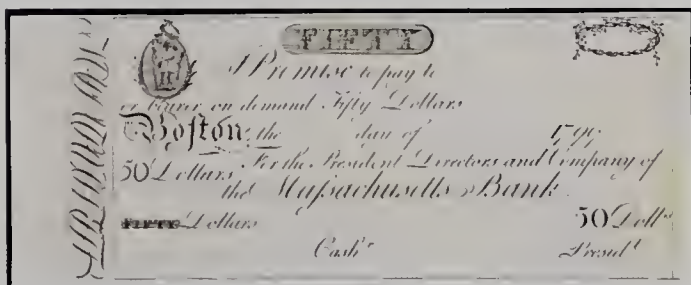 FIFTY
I Promise to pay to
or bearer on demand Fifty Dollars
Boston, the day of 179
50 Dollars For the President Directors and Company of
the Maſsachusetts Bank.
FIFTY Dollars 50 Dollˢ
Cashʳ Presidᵗ